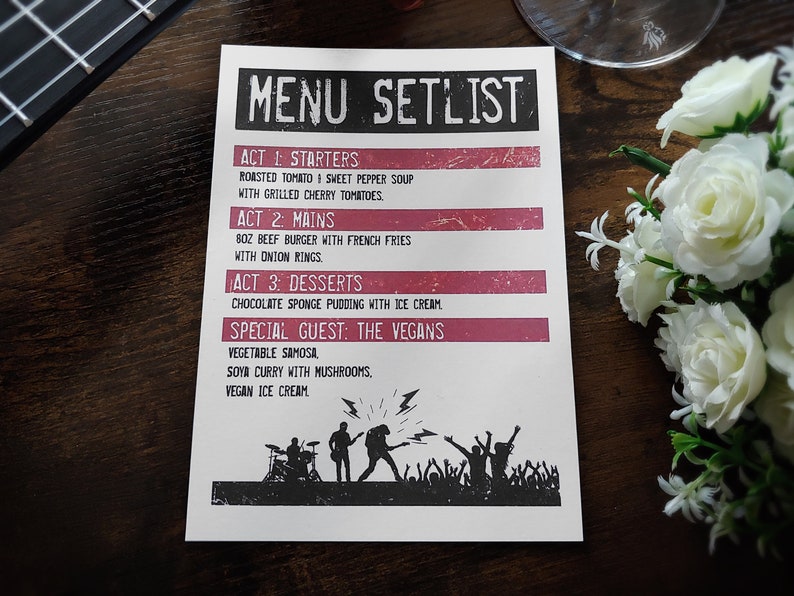 MENU SETLIST
ACT 1: STARTERS
ROASTED TOMATO & SWEET PEPPER SOUP
WITH GRILLED CHERRY TOMATOES.
ACT 2: MAINS
8OZ BEEF BURGER WITH FRENCH FRIES
WITH ONION RINGS.
ACT 3: DESSERTS
CHOCOLATE SPONGE PUDDING WITH ICE CREAM.
SPECIAL GUEST: THE VEGANS
VEGETABLE SAMOSA,
SOYA CURRY WITH MUSHROOMS,
VEGAN ICE CREAM.